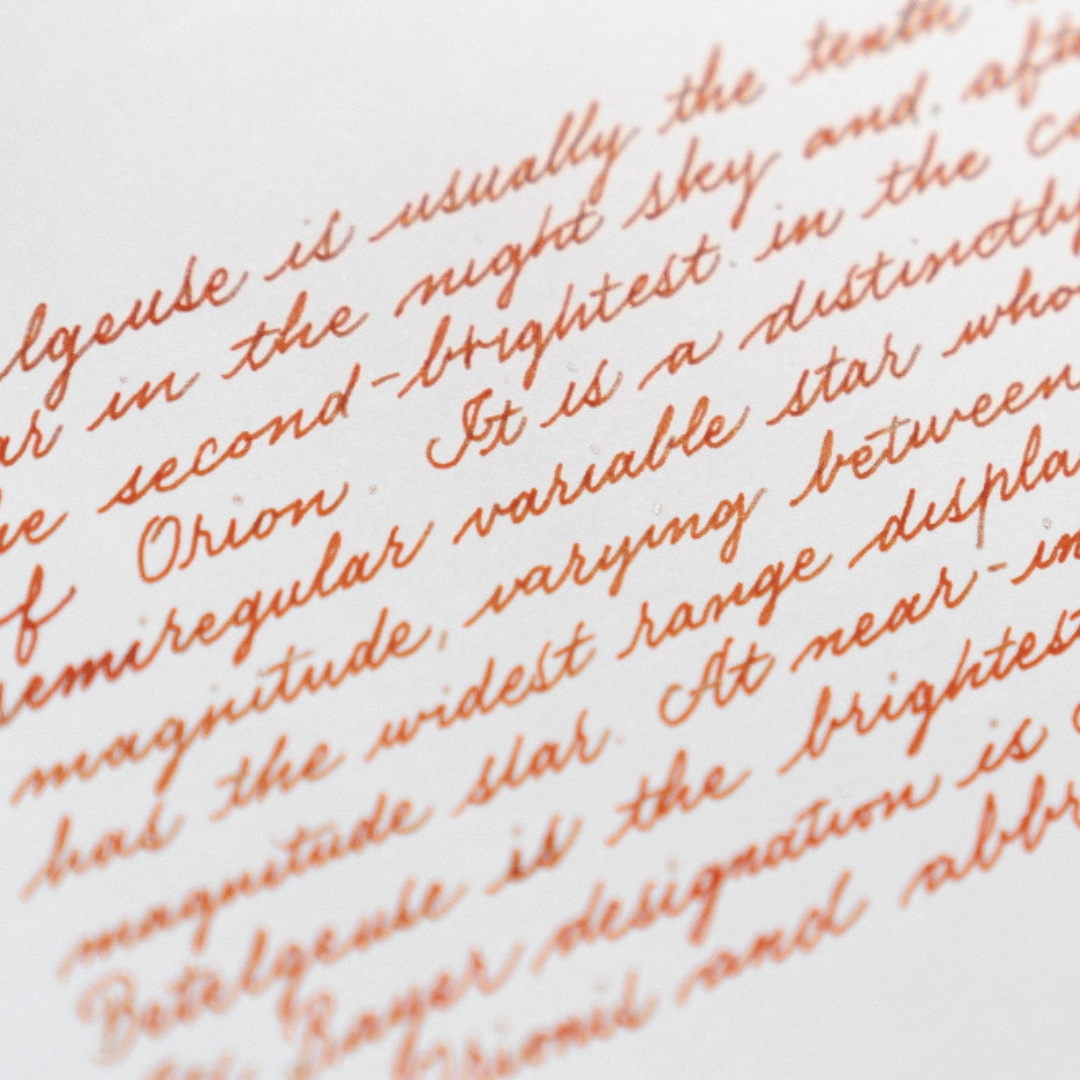 lgeuse is usually the tenth
ar in the night sky and. afte
he second-brightest in the co
of Orion. It is a distinctly
semiregular variable star who
magnitude, varying between
has the widest range displa
magnitude star. At near-in
Betelgeuse is the brightest
Bayer designation is
Orionis and abbr